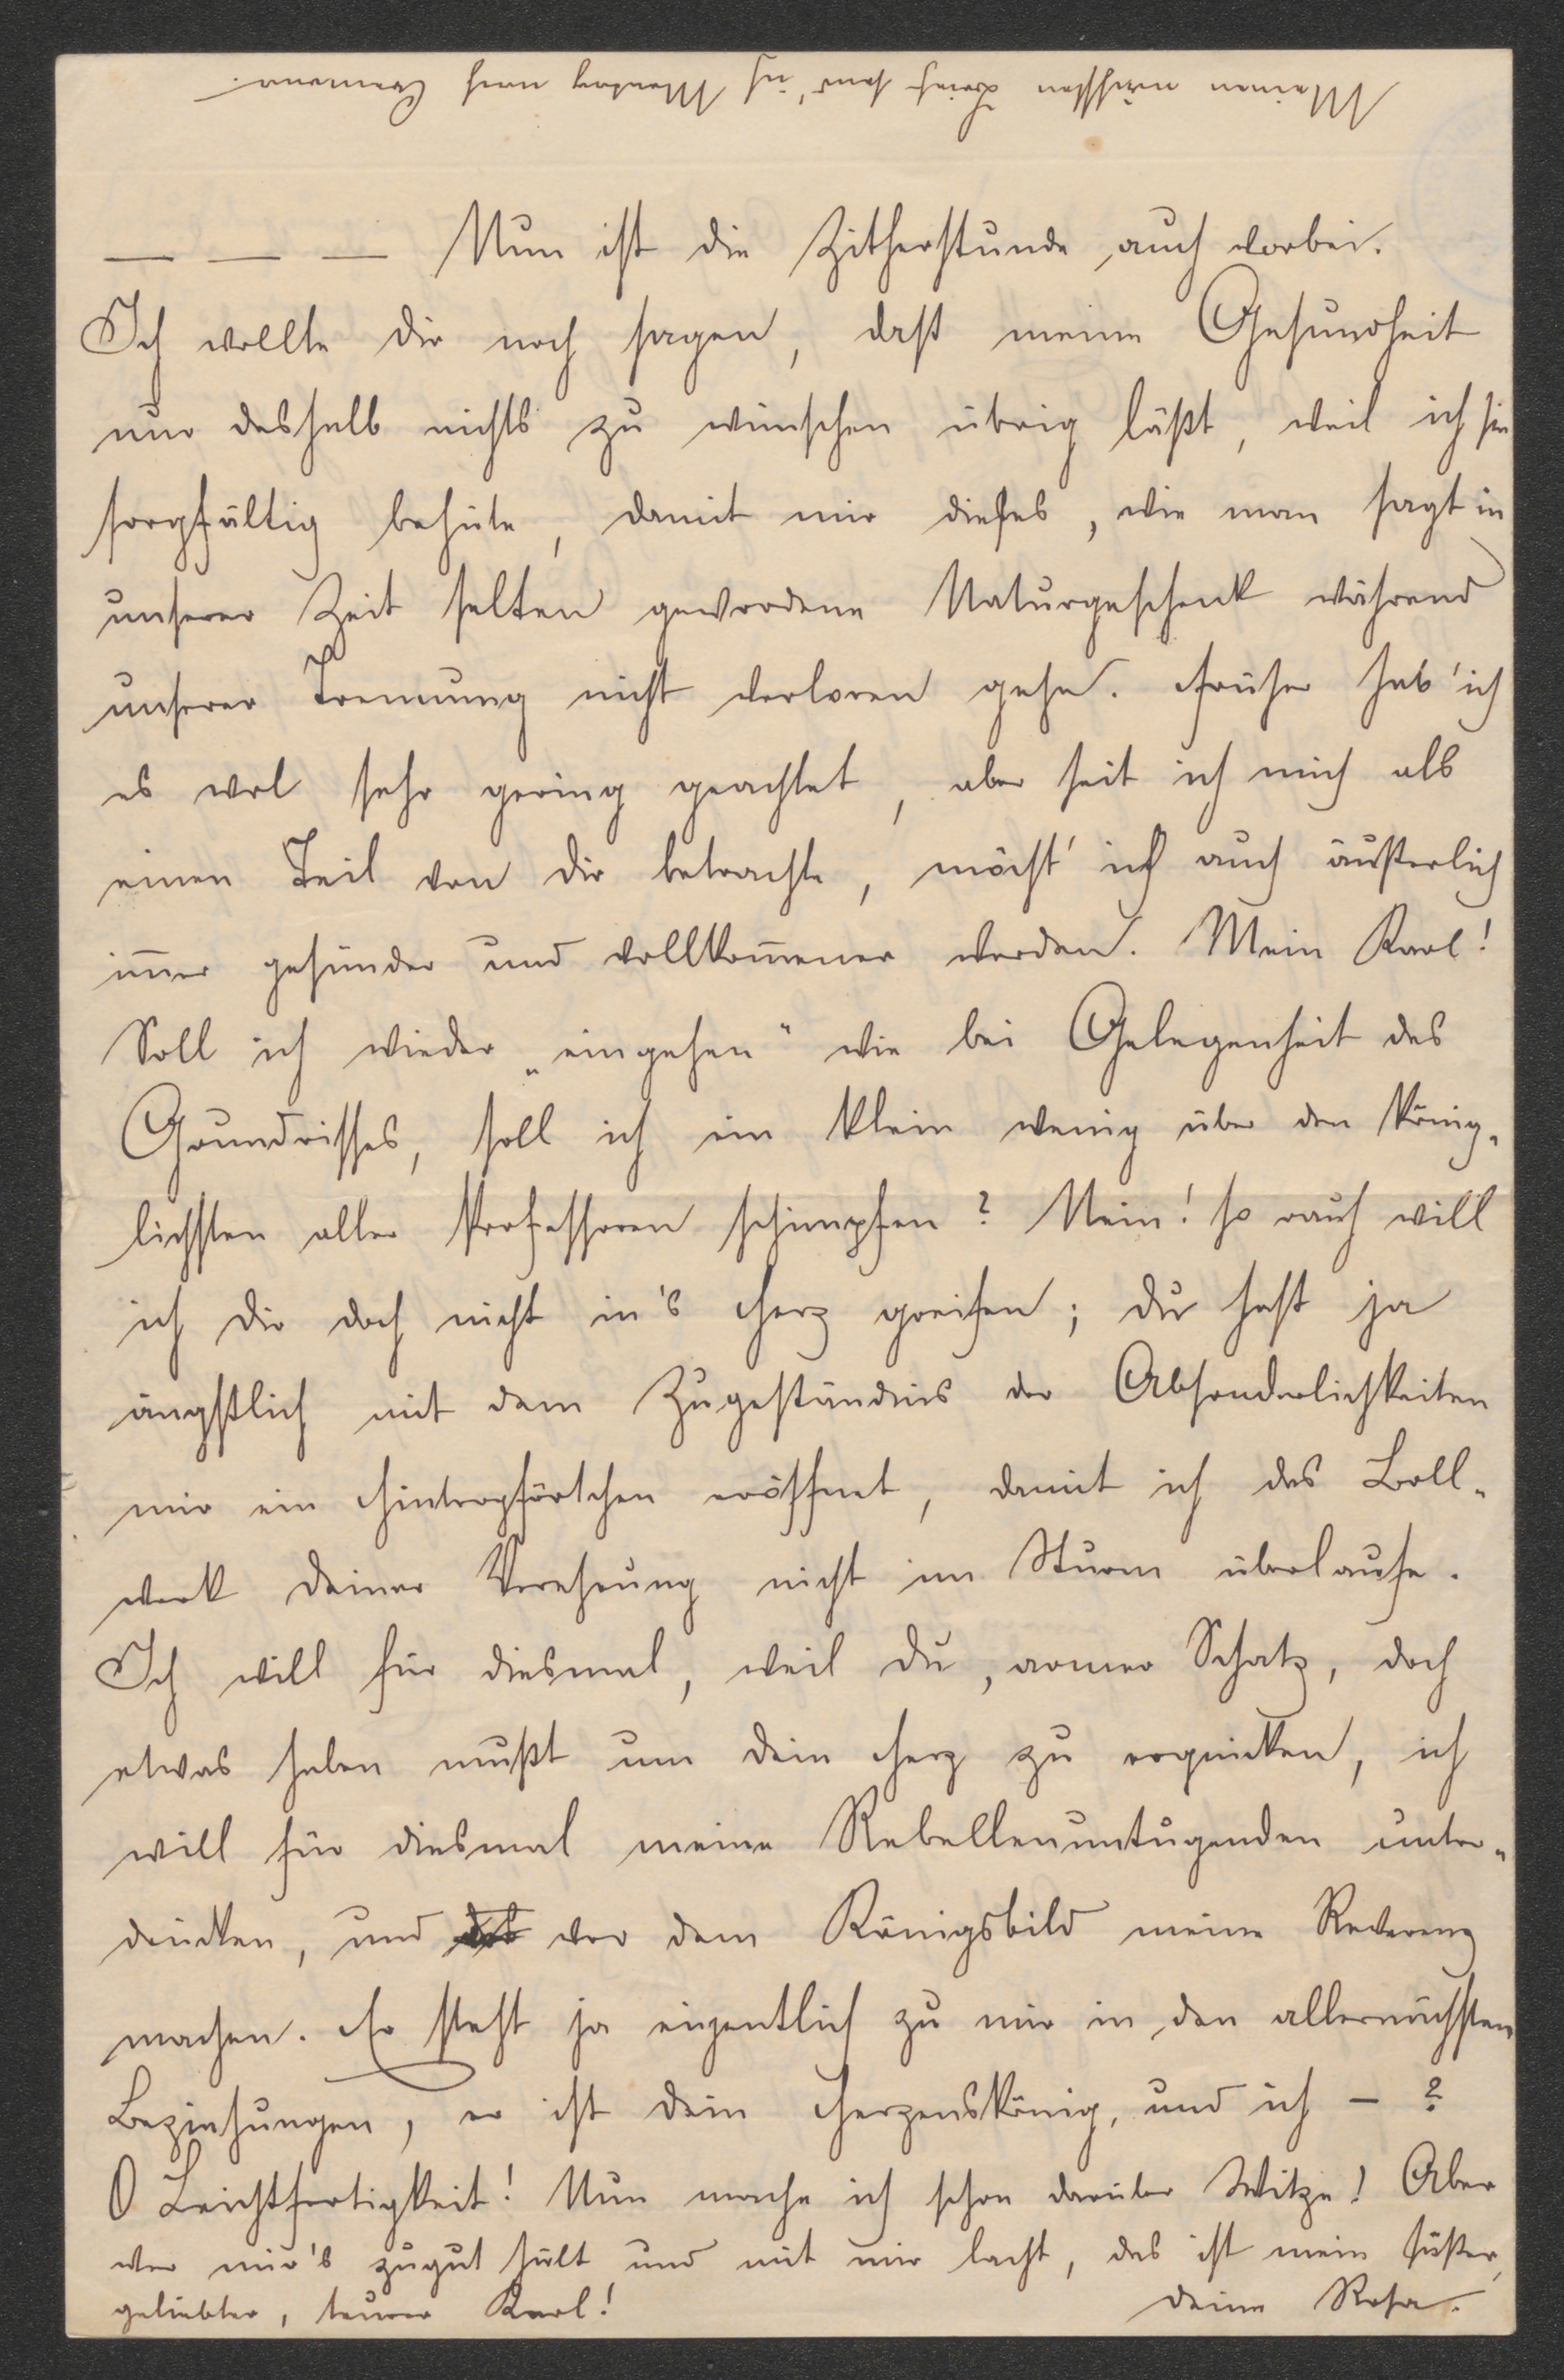 Meinen nächsten Brief send' ich Montag nach Cremona.
— — — Nun ist die Zitherstunde auch vorbei.
Ich wollte dir noch sagen, daß meine Gesundheit
nur deshalb nichts zu wünschen übrig läßt, weil ich sie
sorgfältig behüte, damit mir dieses, wie man sagt in
unserer Zeit selten gewordene Naturgeschenk während
unserer Trennung nicht verloren gehe. Früher hab' ich
es wol sehr gering geachtet, aber seit ich mich als
einen Teil von dir betrachte, möcht' ich auch äußerlich
im̅er gesünder und vollkom̅ener werden. Mein Karl!
Soll ich wieder „eingehen" wie bei Gelegenheit des
Grundrisses, soll ich ein klein wenig über den könig„
lichsten aller Professoren schimpfen? Nein! so rauh will
ich dir doch nicht in's Herz greifen; du hast ja
ängstlich mit dem Zugeständnis der Absonderlichkeiten
mir ein Hinterpförtchen eröffnet, damit ich das Boll„
werk deiner Verehrung nicht im Sturm überlaufe.
Ich will für diesmal, weil du, armer Schatz, doch
etwas haben mußt um dein Herz zu erquicken, ich
will für diesmal meine Rebellenuntugenden unter„
drücken, und vor dem Königsbild meine Reverenz
machen. Er steht ja eigentlich zu mir in den allernächsten
Beziehungen, er ist dein Herzenskönig, und ich – ?
O Leichtfertigkeit! Nun mache ich schon darüber Witze! Aber
wer mir's zugut hält und mit mir lacht, das ist mein süßer,
geliebter, teurer Karl! deine Rosa.